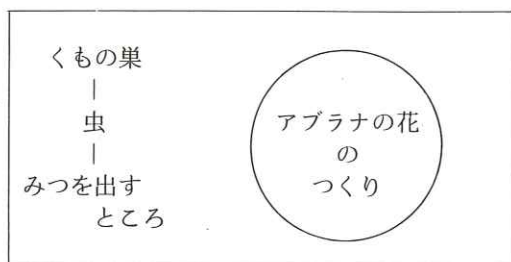 くもの巣
|
虫
|
みつを出す
ところ
アブラナの花
の
つくり